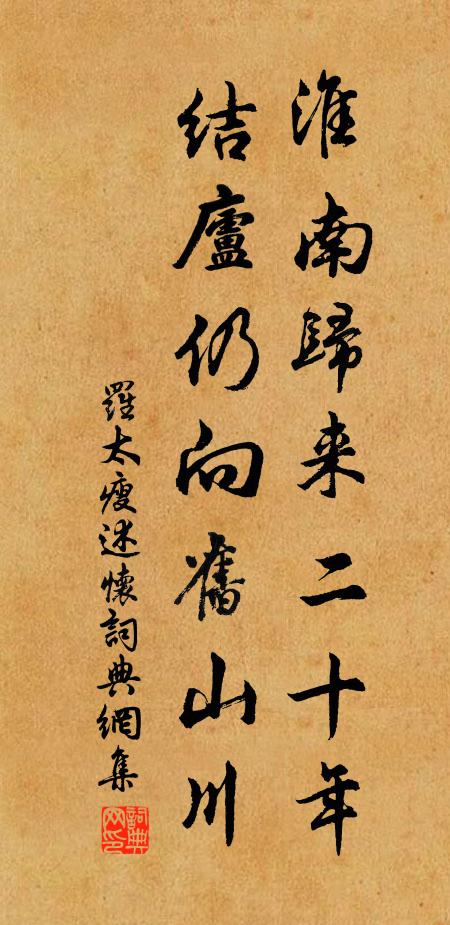 淮南歸来二十年
結廬仍向舊山川
羅太瘦述懷詞典網集
詞典網印